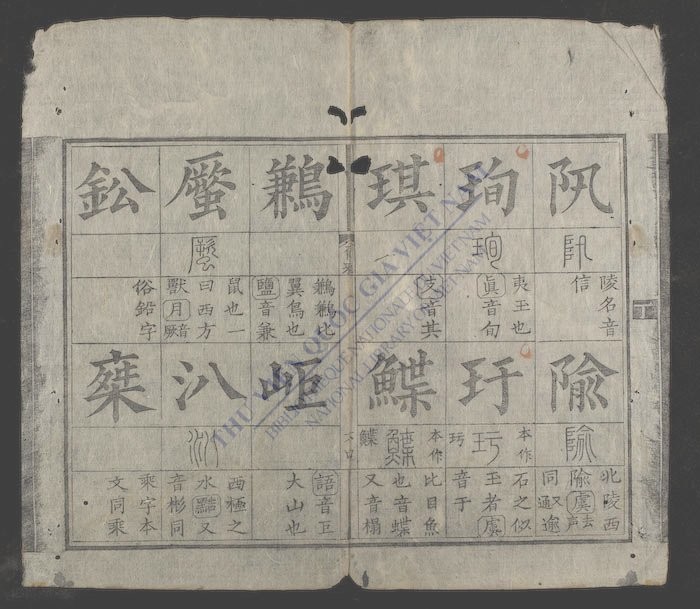 阠
陵名音
信
珣
夷玉也
眞音旬
琪
支音其
鶼
鶼鶼比
翼鳥也
鹽音兼
鼠也一
曰西方
獸月音厥
鈆
俗鉛字
隃
北陵西
隃虞去声
又同通逾
玗
本作
玗
石之似
玉者虞
音于
鰈
本作
鰈
比目魚
也音蝶
又音榻
岠
語音巨
大山也
汃
西極之
水黠又
音彬同
椉
乘字本
文同乘
THƯ VIỆN QUỐC GIA VIỆT NAM
BIBLIOTHEQUE NATIONALE DU VIETNAM
NATIONAL LIBRARY OF VIETNAM